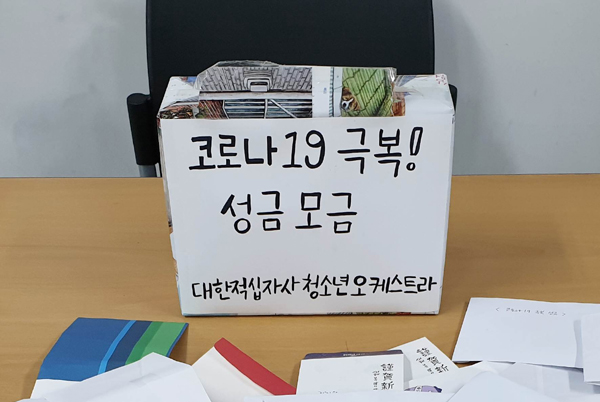 코로나19 극복!
성금 모금
대한적십자사 청소년 오케스트라
謹賀新
謹賀新